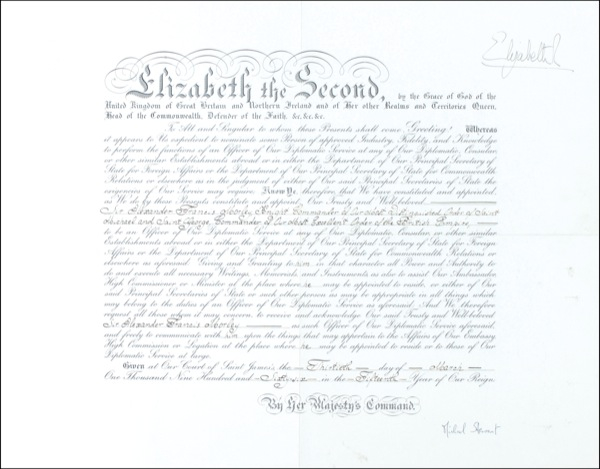 Elizabeth R
Elizabeth the Second, by the Grace of God of the
United Kingdom of Great Britain and Northern Ireland and of Her other Realms and Territories Queen,
Head of the Commonwealth, Defender of the Faith, &c. &c. &c.
To All and Singular to whom these Presents shall come, Greeting! Whereas
it appears to Us expedient to nominate some Person of approved Industry, Fidelity, and Knowledge
to perform the functions of an Officer of Our Diplomatic Service at any of Our Diplomatic, Consular
or other similar Establishments abroad or in either the Department of Our Principal Secretary of
State for Foreign Affairs or the Department of Our Principal Secretary of State for Commonwealth
Relations or elsewhere as in the judgment of either of Our said Principal Secretaries of State the
exigencies of Our Service may require. Know Ye, therefore, that We have constituted and appointed,
as We do by these Presents constitute and appoint, Our Trusty and Well-beloved
Sir Alexander Francis Knight Commander of Our Most Distinguished Order of Saint
Michael and Saint George, Commander of Our Most Excellent Order of the British Empire
to be an Officer of Our Diplomatic Service at any of Our Diplomatic, Consular, or other similar
Establishments abroad or in either the Department of Our Principal Secretary of State for Foreign
Affairs or the Department of Our Principal Secretary of State for Commonwealth Relations or
elsewhere as aforesaid. Giving and Granting to him in that character all Power and Authority to
do and execute all necessary Writings, Memorials and Instruments as also to assist Our Ambassador
High Commissioner or Minister at the place where he may be appointed to reside, or either of Our
said Principal Secretaries of State or such other person as may be appropriate in all things which
may belong to the duties of an Officer of Our Diplomatic Service as aforesaid. And We therefore
request all those whom it may concern, to receive and acknowledge Our said Trusty and Well-beloved
Sir Alexander Francis as such Officer of Our Diplomatic Service aforesaid,
and freely to communicate with him upon the things that may appertain to the Affairs of Our Embassy
High Commission or Legation at the place where he may be appointed to reside or to those of Our
Diplomatic Service at large.
Given at Our Court of Saint James's, the Thirtieth day of March
One Thousand Nine Hundred and in the Fifteenth Year of Our Reign.
By Her Majesty's Command.
Michael Stewart